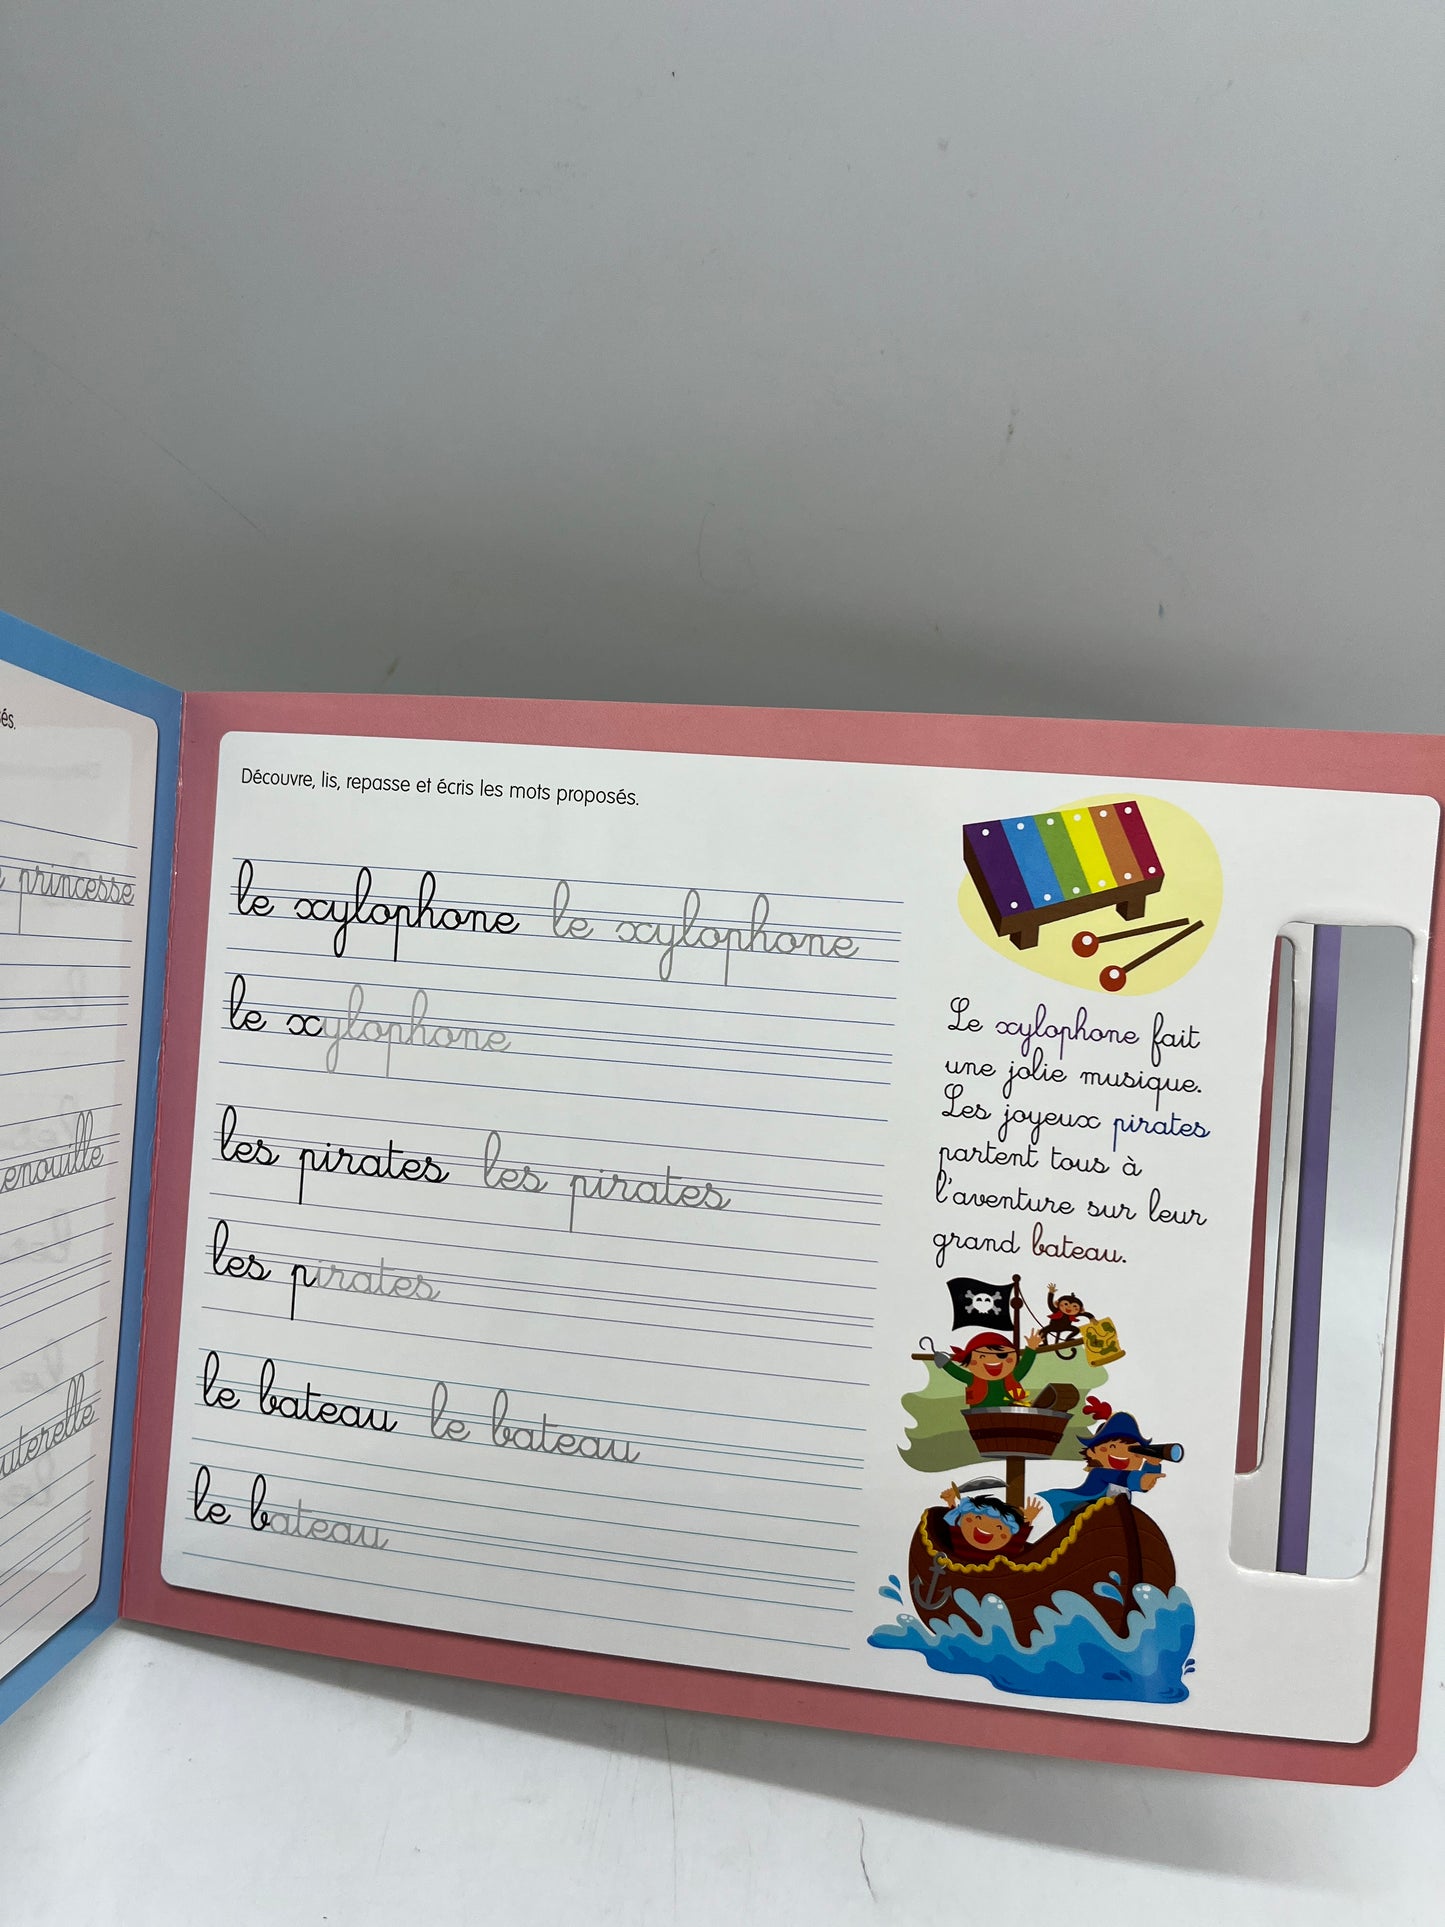 és.
princesse
enouille
uterelle
Découvre, lis, repasse et écris les mots proposés.
le xylophone le xylophone
le xylophone
les pirates les pirates
les pirates
le bateau le bateau
le bateau
Le xylophone fait
une jolie musique.
Les joyeux pirates
partent tous à
l'aventure sur leur
grand bateau.